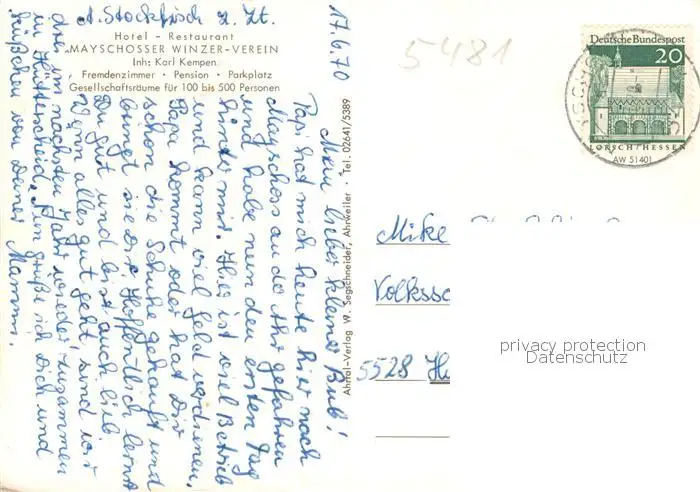 A. Stockfisch z. Zt.
Hotel - Restaurant
„MAYSCHOSSER WINZER-VEREIN
Inh: Karl Kempen
Fremdenzimmer · Pension · Parkplatz
Gesellschaftsräume für 100 bis 500 Personen
17.6.70
Mein lieber kleiner Bub!
Papi hat mich heute hier nach
Mayschoss an der Ahr gefahren
und habe nun den ersten Tag
hinter mir. Hier ist viel Betrieb
und kann viel Geld verdienen.
Papa kommt oder hat Dir
schon die Schuhe gekauft und
bringt sie dir. Hoffentlich lernst
Du gut und bist auch lieb
Wenn alles gut geht sind wir
im nächsten Jahr wieder zusammen
in Hütterscheid. Nun grüße ich Dich und
von Deiner Mammi.
Ahrtal-Verlag W. Segschneider, Ahrweiler · Tel. 02641/5389
5481
Deutsche Bundespost
20
LORSCH/HESSEN
AW 51401
Mike
Volkssc
5528 H
privacy protection
Datenschutz